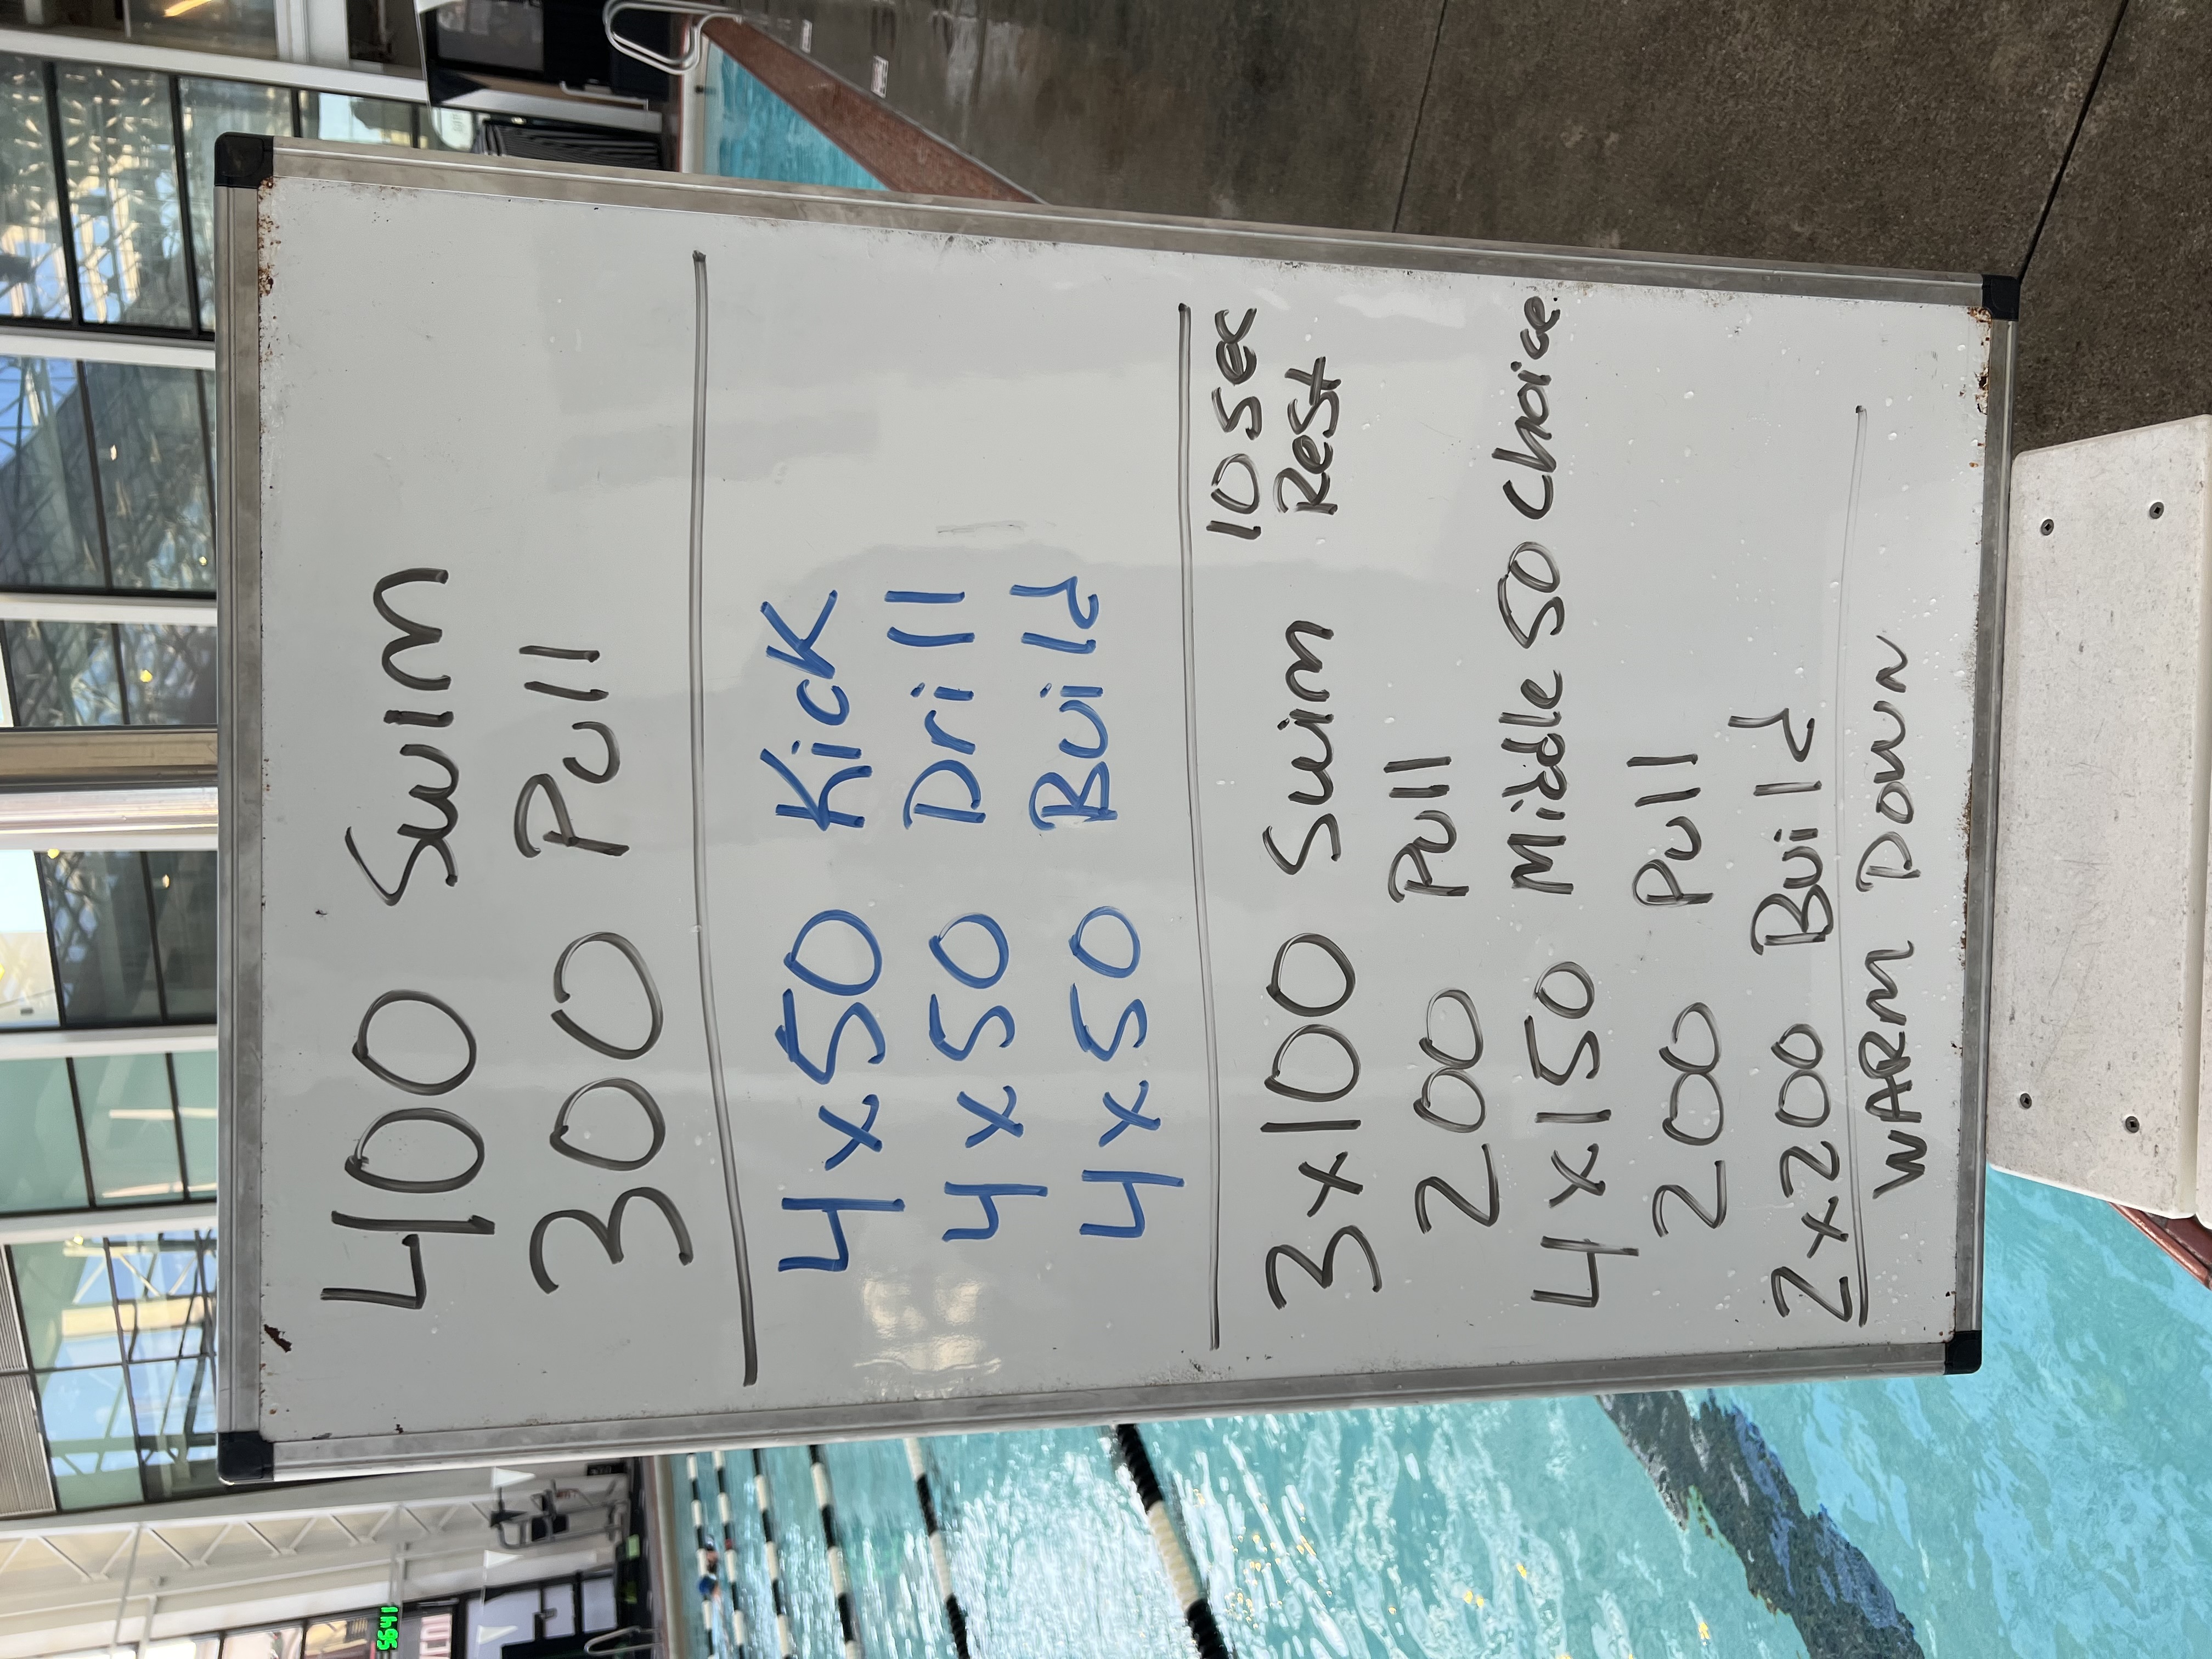 400 Swim
300 Pull
4x50 Kick
4x50 Drill
4x50 Build
10 sec
Rest
3x100 Swim
200 Pull
4x150 Middle 50 Choice
200 Pull
2x200 Build
WARM DOWN